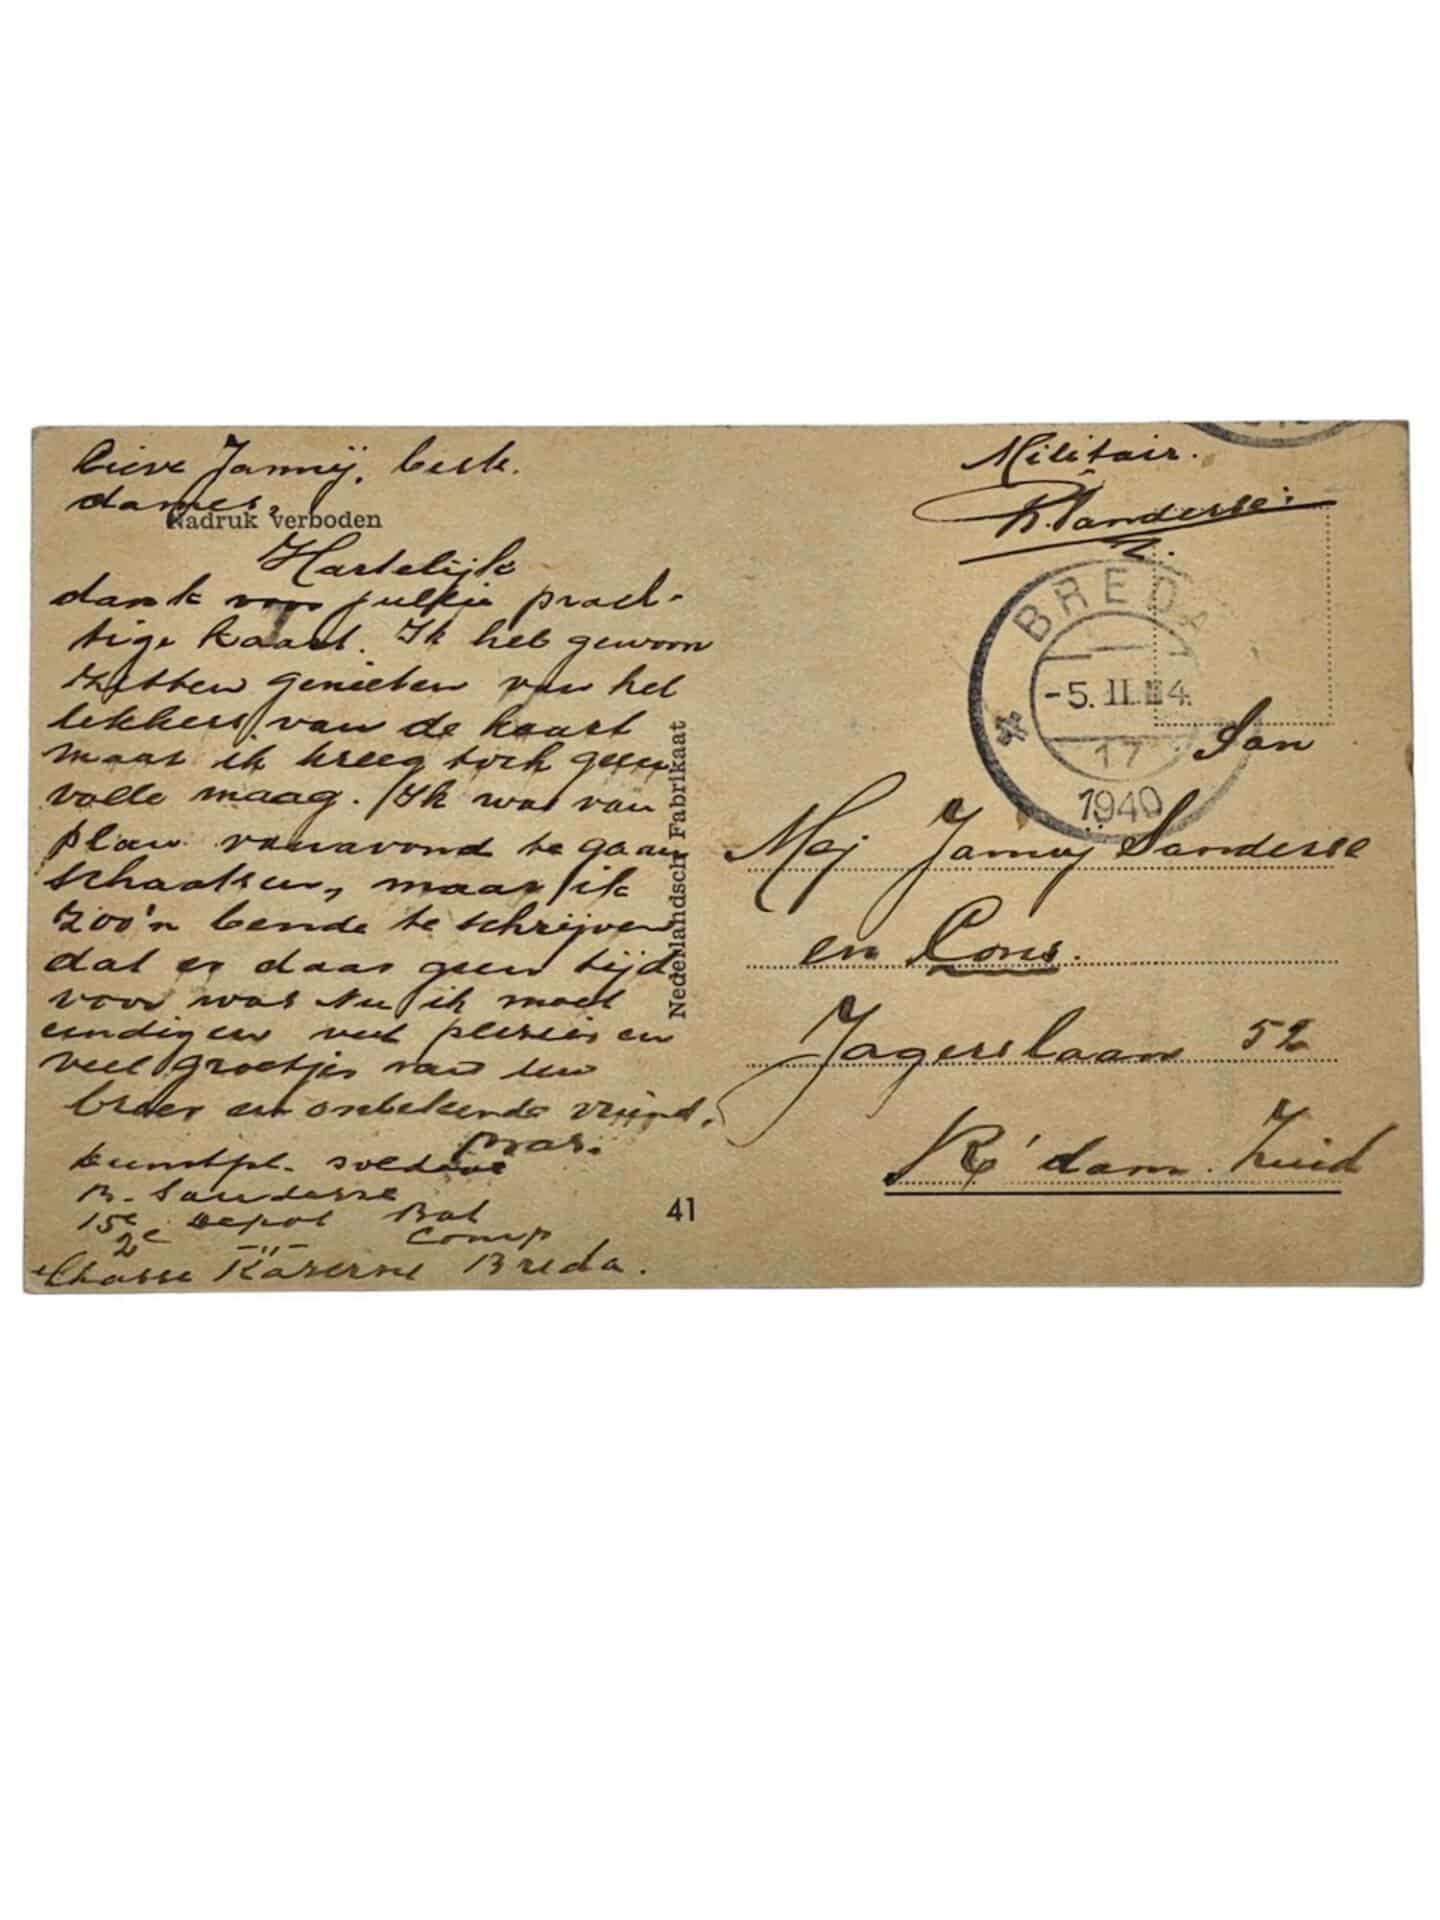 Lieve Jannij, beste
dames,
Nadruk verboden
Hartelijk
dank voor jullie prach-
tige kaart. Ik heb gewoon
zitten genieten van het
lekkers van de kaart
maar ik kreeg toch geen
volle maag. Ik was van
plan vanavond te gaan
schaatsen, maar ik
zoo'n bende te schrijven
dat er daar geen tijd
voor was Nu ik moet
eindigen veel plezier en
veel groetjes van uw
broer en onbekende vriend.
dienstpl. soldaat
B. Sanderse
15e Depot Bat
2e Comp
Chasse Kazerne Breda.
Nederlandsch Fabrikaat
41
Militair.
B. Sanderse.
BREDA
-5.II.4.
17
1940
Aan
Mej Jannij Sanderse
en Cons.
Jagerslaan 52
R'dam. Zuid